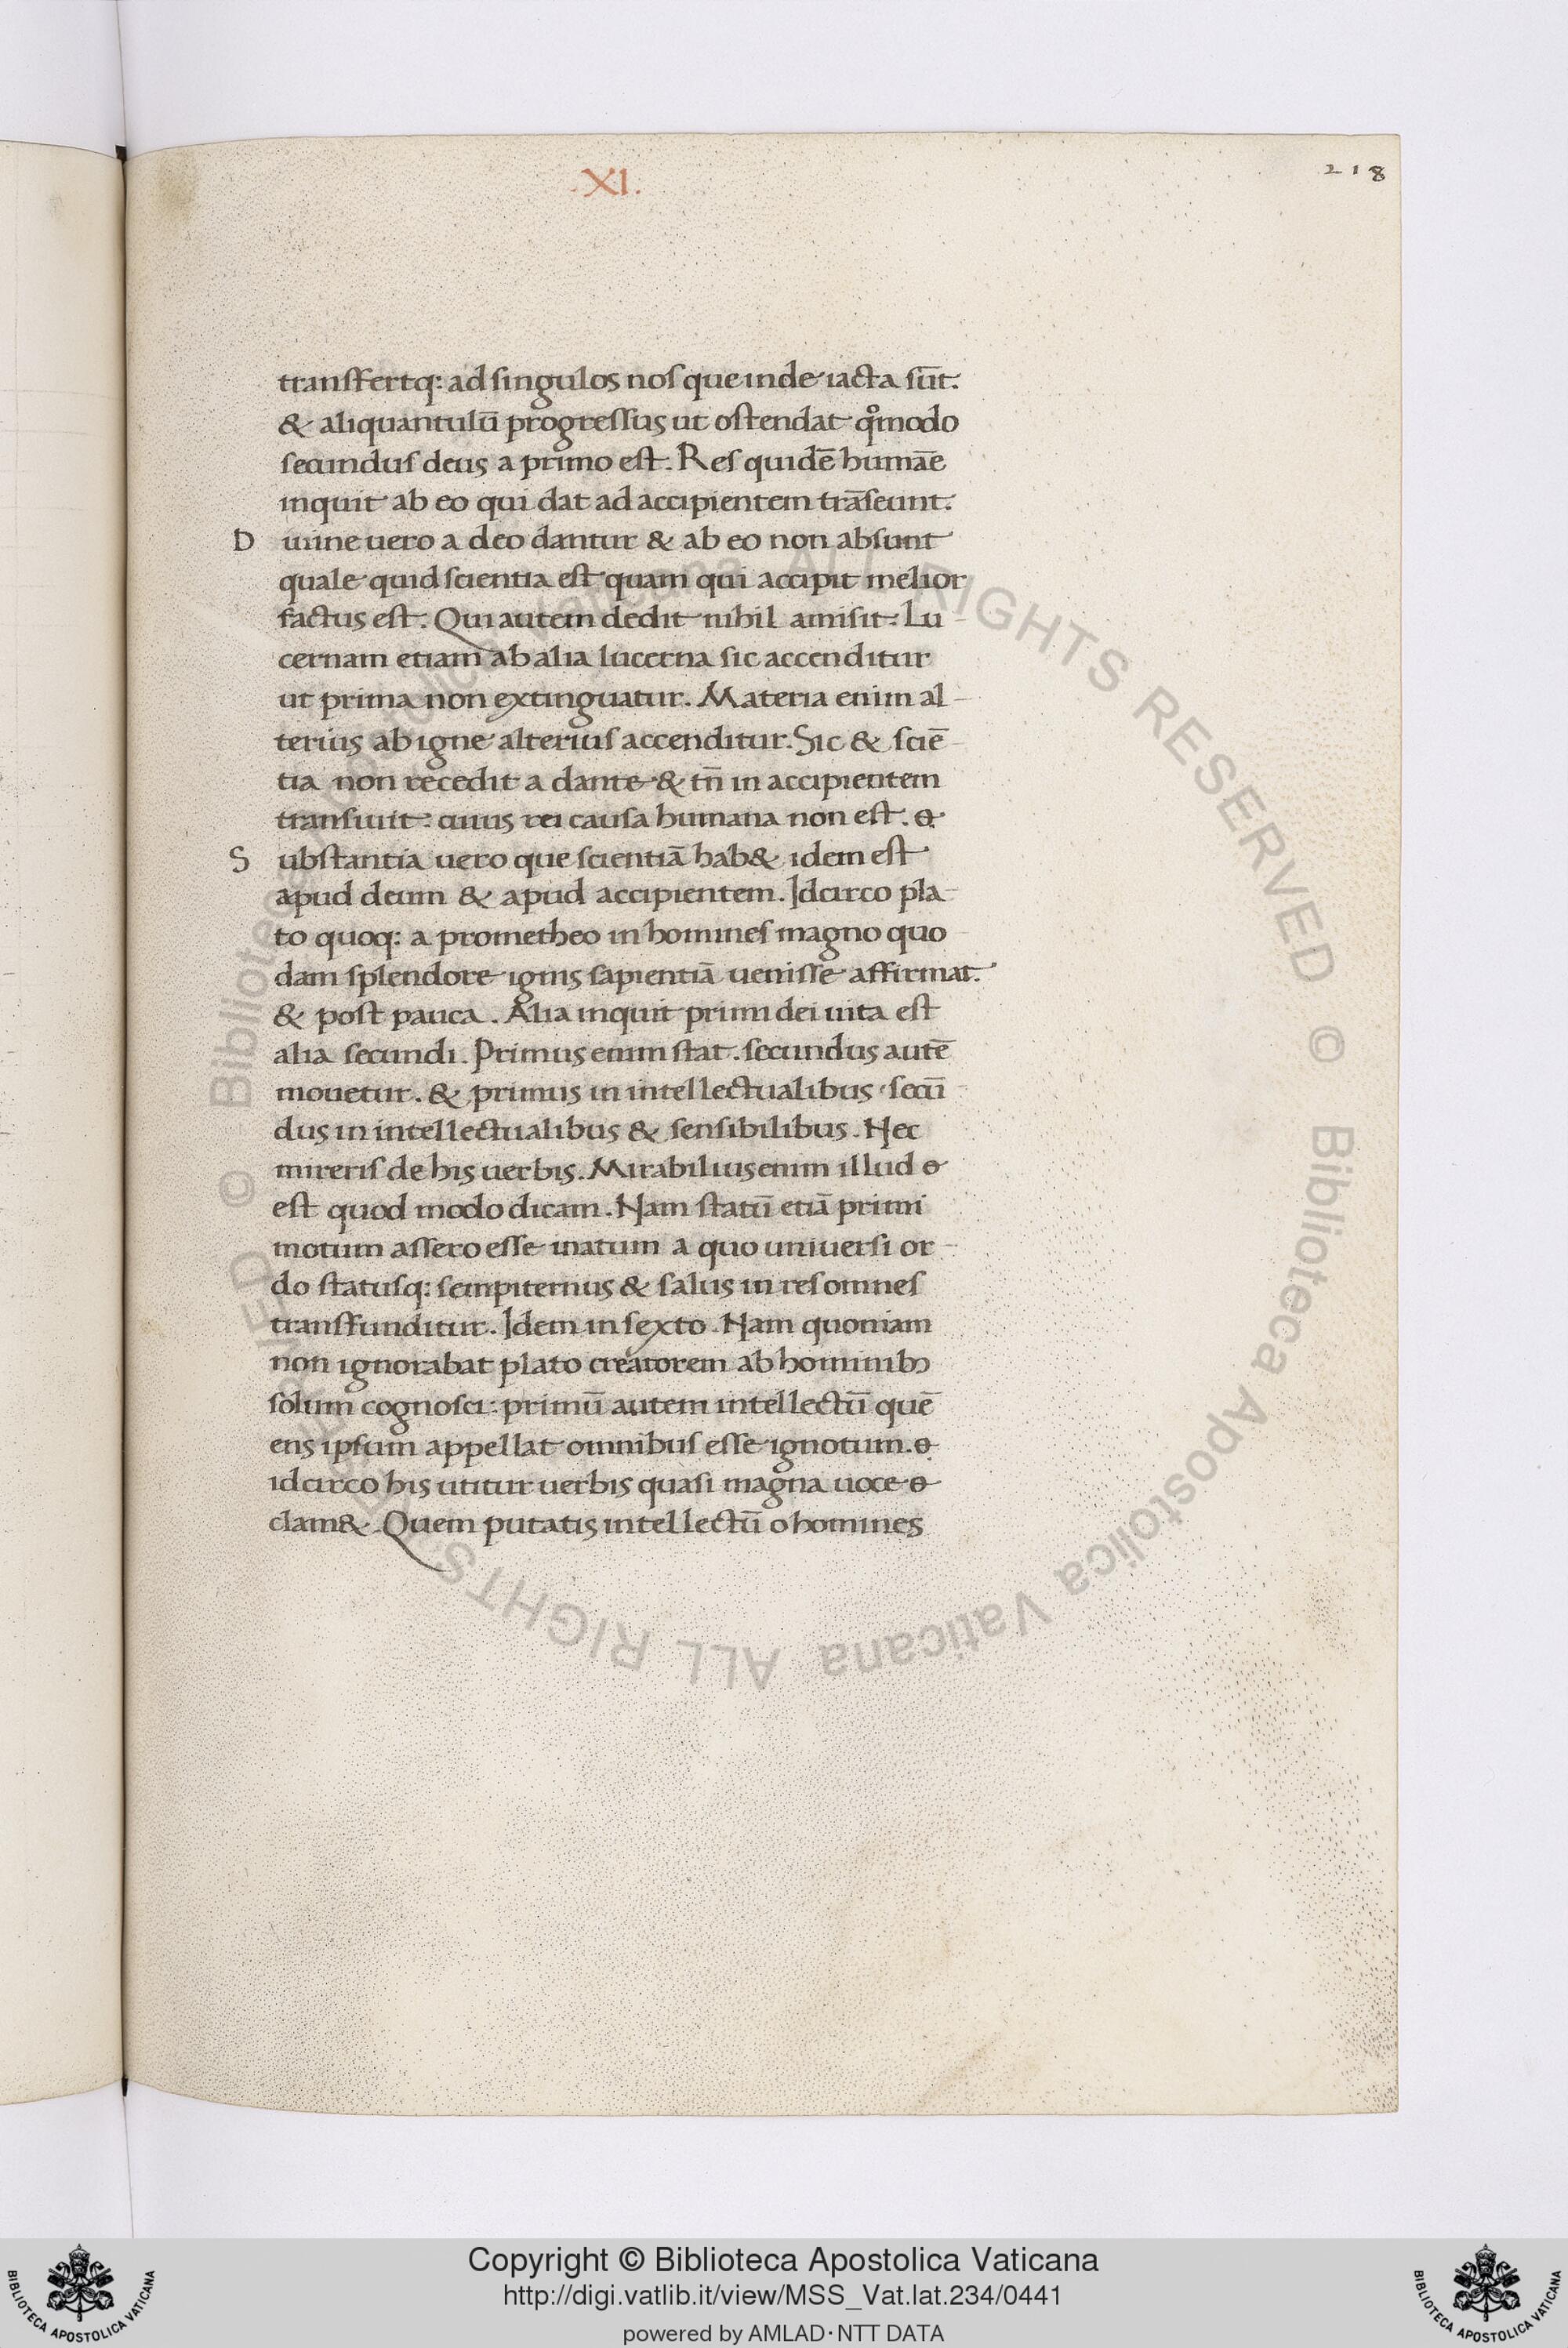 .XI.
218
transfertq: ad singulos nos que inde iacta sūt.
& aliquantulū progressus ut ostendat qͦmodo
secundus deus a primo est. Res quidē humāe
inquit ab eo qui dat ad accipientem trāseunt.
D iuine uero a deo dantur & ab eo non absunt
quale quid scientia est quam qui accipit melior
factus est. Qui autem dedit nihil amisit. Lu-
cernam etiam ab alia lucerna sic accenditur
ut prima non extinguatur. Materia enim al-
terius ab igne alterius accenditur. Sic & sciē-
tia non recedit a dante & tn̄ in accipientem
transiuit: cuius rei causa humana non est.
S ubstantia uero que scientiā hab& idem est
apud deum & apud accipientem. Idcirco pla-
to quoq: a prometheo in homines magno quo
dam splendore ignis sapientiā uenisse affirmat.
& post pauca. Alia inquit primi dei uita est
alia secundi. Primus enim stat. secundus autē
mouetur. & primus in intellectualibus. secū-
dus in intellectualibus & sensibilibus. Nec
mireris de his uerbis. Mirabilius enim illud
est quod modo dicam. Nam statū etiā primi
motum assero esse inatum a quo uniuersi or-
do statusq: sempiternus & salus in res omnes
transfunditur. Idem in sexto. Nam quoniam
non ignorabat plato creatorem ab hominibꝫ
solum cognosci: primū autem intellectū quē
ens ipsum appellat omnibus esse ignotum.
idcirco his utitur uerbis quasi magna uoce
clam&. Quem putatis intellectū o homines
© Biblioteca Apostolica Vaticana ALL RIGHTS RESERVED © Biblioteca Apostolica Vaticana ALL RIGHTS RESERVED
BIBLIOTECA APOSTOLICA VATICANA
Copyright © Biblioteca Apostolica Vaticana
http://digi.vatlib.it/view/MSS_Vat.lat.234/0441
powered by AMLAD·NTT DATA
BIBLIOTECA APOSTOLICA VATICANA